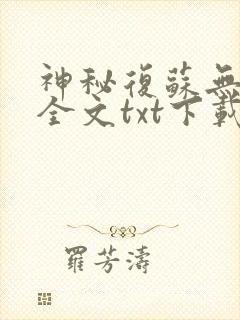 神秘復蘇無
全文txt下載
羅芳濤